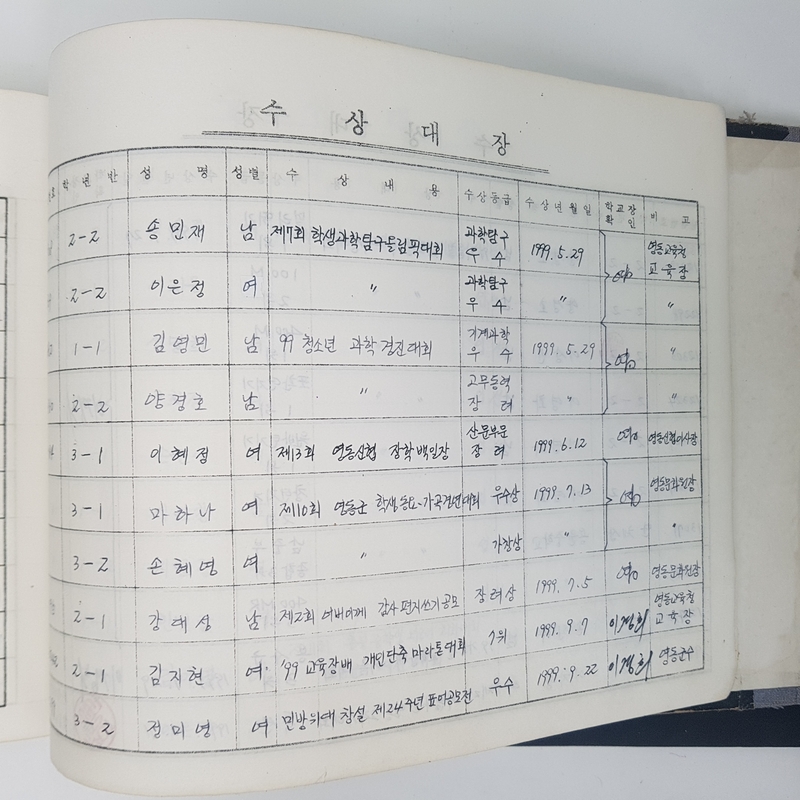 수 상 대 장
학 년 반 성 명 성별 수 상 내 용 수상등급 수 상 년 월 일 학교장 확 인 비 고
2-2 송민재 남 제7회 학생과학탐구올림픽대회 과학탐구 우수 1999.5.29 영동교육청 교육장
2-2 이은정 여 〃 과학탐구 우수 〃 〃
1-1 김영민 남 99 청소년 과학경진대회 기계과학 우수 1999.5.29 〃
2-2 양경호 남 〃 고무동력 장려 〃 〃
3-1 이혜정 여 제13회 영동신협 장학백일장 산문부문 장려 1999.6.12 영동신협이사장
3-1 마하나 여 제10회 영동군 학생동요·가곡경연대회 우수상 1999.7.13 영동문화원장
3-2 손혜영 여 〃 가창상 〃 〃
2-1 강대성 남 제2회 어버이께 감사편지쓰기공모 장려상 1999.7.5 영동문화원장
2-1 김지현 여 '99 교육장배 개인단축마라톤대회 7위 1999.9.7 영동교육청 교육장
3-2 전미영 여 민방위대 창설 제24주년 표어공모전 우수 1999.9.22 영동군수